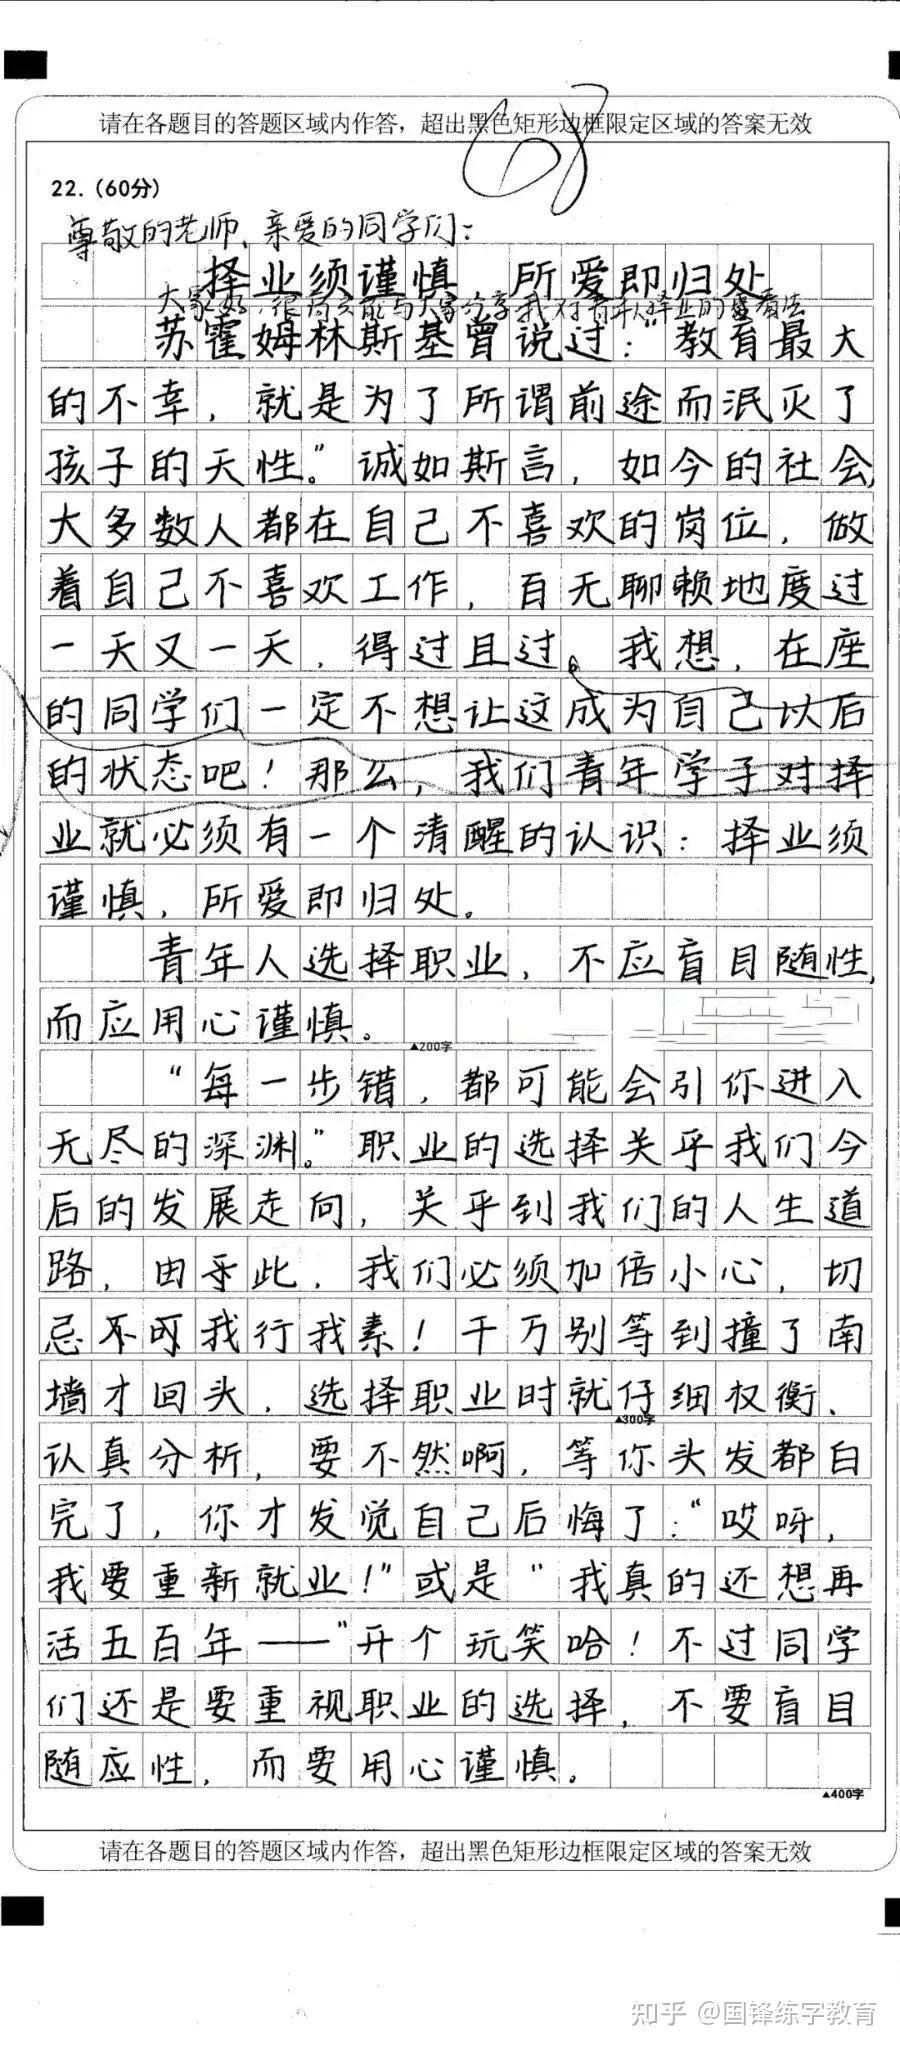 请在各题目的答题区域内作答，超出黑色矩形边框限定区域的答案无效
22.（60分）
尊敬的老师、亲爱的同学们：
择业须谨慎 所爱即归处
大家好，很高兴能与大家分享我对青年人择业的看法
苏霍姆林斯基曾说过：“教育最大
的不幸，就是为了所谓前途而泯灭了
孩子的天性。”诚如斯言，如今的社会，
大多数人都在自己不喜欢的岗位，做
着自己不喜欢工作，百无聊赖地度过
一天又一天，得过且过。我想，在座
的同学们一定不想让这成为自己以后
的状态吧！那么，我们青年学子对择
业就必须有一个清醒的认识：择业须
谨慎，所爱即归处。
青年人选择职业，不应盲目随性，
而应用心谨慎。
▲200字
“每一步错，都可能会引你进入
无尽的深渊。”职业的选择关乎我们今
后的发展走向，关乎到我们的人生道
路，由乎此，我们必须加倍小心，切
忌不可我行我素！千万别等到撞了南
墙才回头，选择职业时就仔细权衡、
▲300字
认真分析，要不然啊，等你头发都白
完了，你才发觉自己后悔了：“哎呀，
我要重新就业！”或是“我真的还想再
活五百年——”开个玩笑哈！不过同学
们还是要重视职业的选择，不要盲目
随应性，而要用心谨慎。
▲400字
请在各题目的答题区域内作答，超出黑色矩形边框限定区域的答案无效
知乎 @国锋练字教育